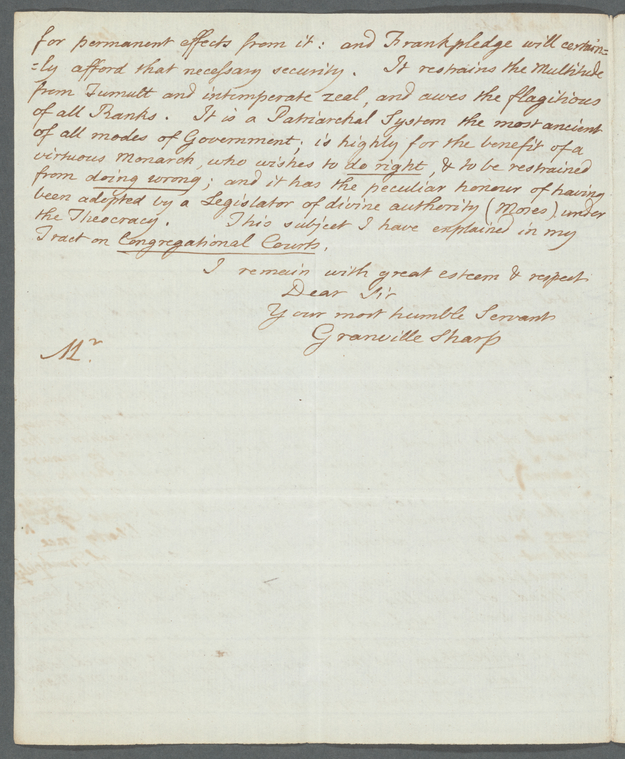 for permanent effects from it: and Frankpledge will certain=
=ly afford that necessary security. It restrains the Multitude
from Tumult and intemperate zeal, and awes the flagitious
of all Ranks. It is a Patriarchal System the most ancient
of all modes of Government; is highly for the benefit of a
virtuous Monarch, who wishes to do right, & to be restrained
from doing wrong; and it has the peculiar honour of having
been adopted by a Legislator of divine authority (Moses) under
the Theocracy. This subject I have explained in my
Tract on Congregational Courts.
I remain with great esteem & respect
Dear Sir
Your most humble Servant
Granville Sharp
Mr.